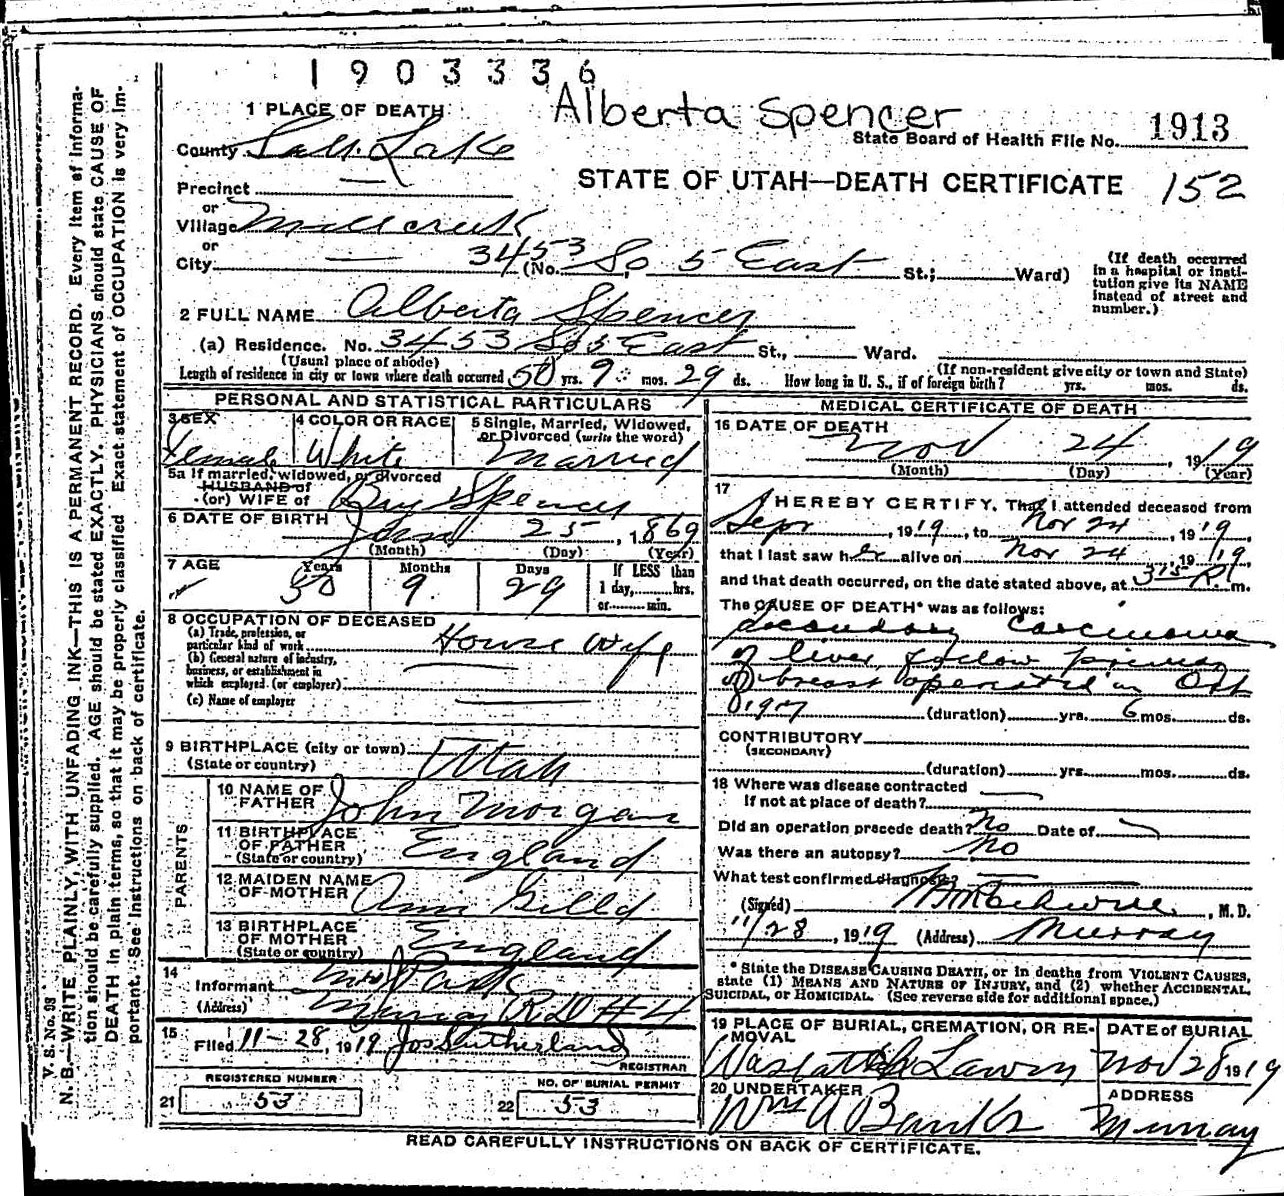 1903336
Alberta Spencer
1 PLACE OF DEATH
State Board of Health File No. 1913
County Salt Lake
STATE OF UTAH—DEATH CERTIFICATE 152
Precinct
or
Village Millcreek
or
City
3453
(No. So 5 East St.; Ward)
(If death occurred
in a hospital or insti-
tution give its NAME
instead of street and
number.)
2 FULL NAME Alberta Spencer
(a) Residence. No. 3453 So 5 East St., Ward.
(Usual place of abode)
(If non-resident give city or town and State)
Length of residence in city or town where death occurred 50 yrs. 9 mos. 29 ds. How long in U. S., if of foreign birth? yrs. mos. ds.
PERSONAL AND STATISTICAL PARTICULARS
3 SEX
Female
4 COLOR OR RACE
White
5 Single, Married, Widowed,
or Divorced (write the word)
Married
5a If married, widowed, or divorced
HUSBAND of
(or) WIFE of Spencer
6 DATE OF BIRTH Jan 25, 1869
(Month) (Day) (Year)
7 AGE Years Months Days
50 9 29
If LESS than
1 day, hrs.
or min.
8 OCCUPATION OF DECEASED
(a) Trade, profession, or
particular kind of work House Wife
(b) General nature of industry,
business, or establishment in
which employed (or employer)
(c) Name of employer
9 BIRTHPLACE (city or town)
(State or country) Utah
PARENTS
10 NAME OF
FATHER John Morgan
11 BIRTHPLACE
OF FATHER
(State or country) England
12 MAIDEN NAME
OF MOTHER Ann
13 BIRTHPLACE
OF MOTHER
(State or country) England
14
Informant Mrs J Park
(Address) Murray R D #4
15
Filed 11-28, 1919 Jos Sutherland
REGISTRAR
REGISTERED NUMBER
21 53
NO. OF BURIAL PERMIT
22 53
MEDICAL CERTIFICATE OF DEATH
16 DATE OF DEATH
Nov 24, 1919
(Month) (Day) (Year)
17
I HEREBY CERTIFY, That I attended deceased from
Sept, 1919, to Nov 24, 1919,
that I last saw her alive on Nov 24, 1919,
and that death occurred, on the date stated above, at 3 15 P. m.
The CAUSE OF DEATH* was as follows:
Secondary Carcinoma
of liver, follow primary
of breast operated in Oct
1917 (duration) yrs. 6 mos. ds.
CONTRIBUTORY
(SECONDARY)
(duration) yrs. mos. ds.
18 Where was disease contracted
If not at place of death?
Did an operation precede death? No Date of
Was there an autopsy? No
What test confirmed diagnosis?
(Signed) , M. D.
11/28, 1919 (Address) Murray
* State the DISEASE CAUSING DEATH, or in deaths from VIOLENT CAUSES,
state (1) MEANS AND NATURE OF INJURY, and (2) whether ACCIDENTAL,
SUICIDAL, or HOMICIDAL. (See reverse side for additional space.)
19 PLACE OF BURIAL, CREMATION, OR RE-
MOVAL
Wasatch Lawn
DATE of BURIAL
Nov 28 1919
20 UNDERTAKER
Wm A Banks
ADDRESS
Murray
READ CAREFULLY INSTRUCTIONS ON BACK OF CERTIFICATE.
V. S. No. 98
N. B.—WRITE PLAINLY, WITH UNFADING INK—THIS IS A PERMANENT RECORD. Every item of informa-
tion should be carefully supplied. AGE should be stated EXACTLY. PHYSICIANS should state CAUSE OF
DEATH in plain terms, so that it may be properly classified. Exact statement of OCCUPATION is very im-
portant. See instructions on back of certificate.